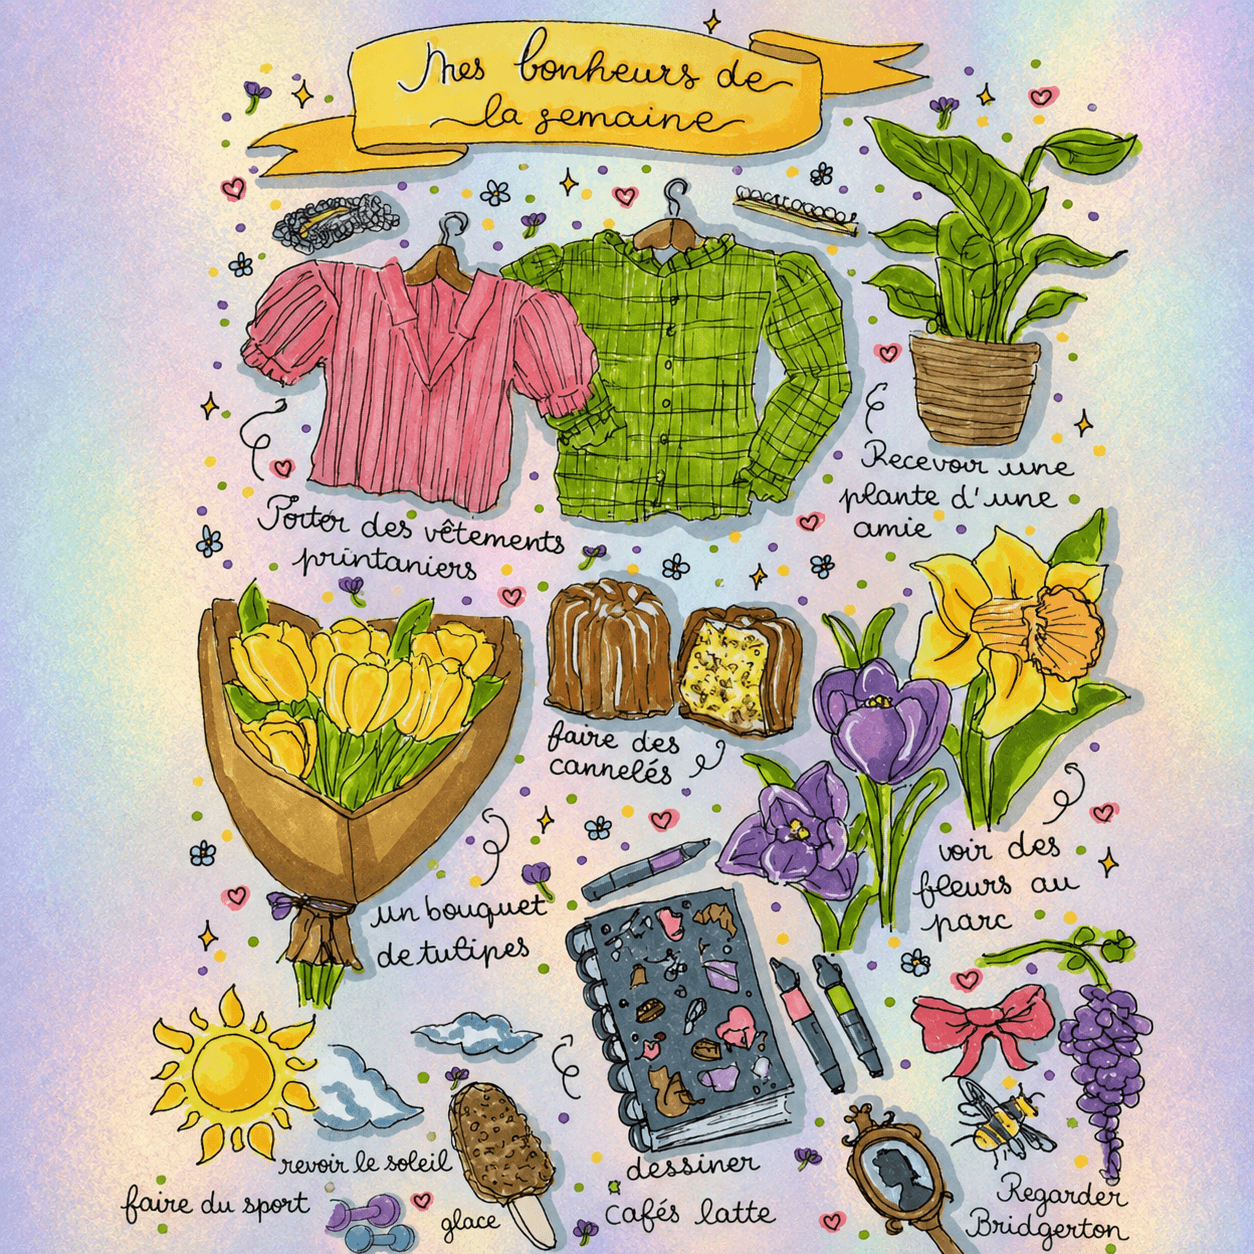 Mes bonheurs de
la semaine
Recevoir une
plante d'une
amie
Porter des vêtements
printaniers
faire des
cannelés
voir des
fleurs au
parc
un bouquet
de tulipes
revoir le soleil
faire du sport
glace
dessiner
cafés latte
Regarder
Bridgerton